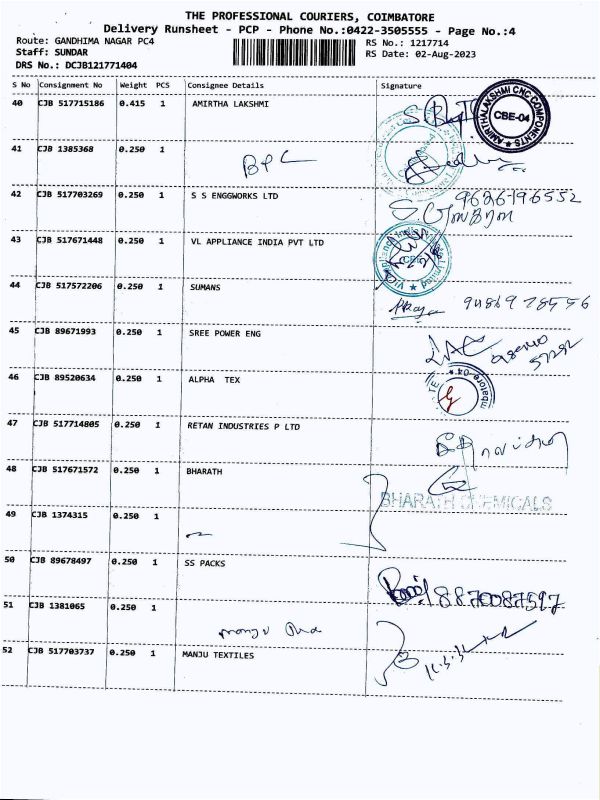 THE PROFESSIONAL COURIERS, COIMBATORE
Delivery Runsheet - PCP - Phone No.:0422-3505555 - Page No.:4
Route: GANDHIMA NAGAR PC4
RS No.: 1217714
Staff: SUNDAR
RS Date: 02-Aug-2023
DRS No.: DCJB121771404
S No Consignment No Weight PCS Consignee Details Signature
40 CJB 517715186 0.415 1 AMIRTHA LAKSHMI
AMIRTHALAKSHMI CNC COMPONENTS
CBE-04
41 CJB 1385368 0.250 1
BPC
42 CJB 517703269 0.250 1 S S ENGGWORKS LTD 9626196552
43 CJB 517671448 0.250 1 VL APPLIANCE INDIA PVT LTD
44 CJB 517572206 0.250 1 SUMANS
45 CJB 89671993 0.250 1 SREE POWER ENG
46 CJB 89520634 0.250 1 ALPHA TEX
47 CJB 517714805 0.250 1 RETAN INDUSTRIES P LTD
48 CJB 517671572 0.250 1 BHARATH
BHARATH CHEMICALS
49 CJB 1374315 0.250 1
50 CJB 89678497 0.250 1 SS PACKS
8870087597
51 CJB 1381065 0.250 1
52 CJB 517703737 0.250 1 MANJU TEXTILES